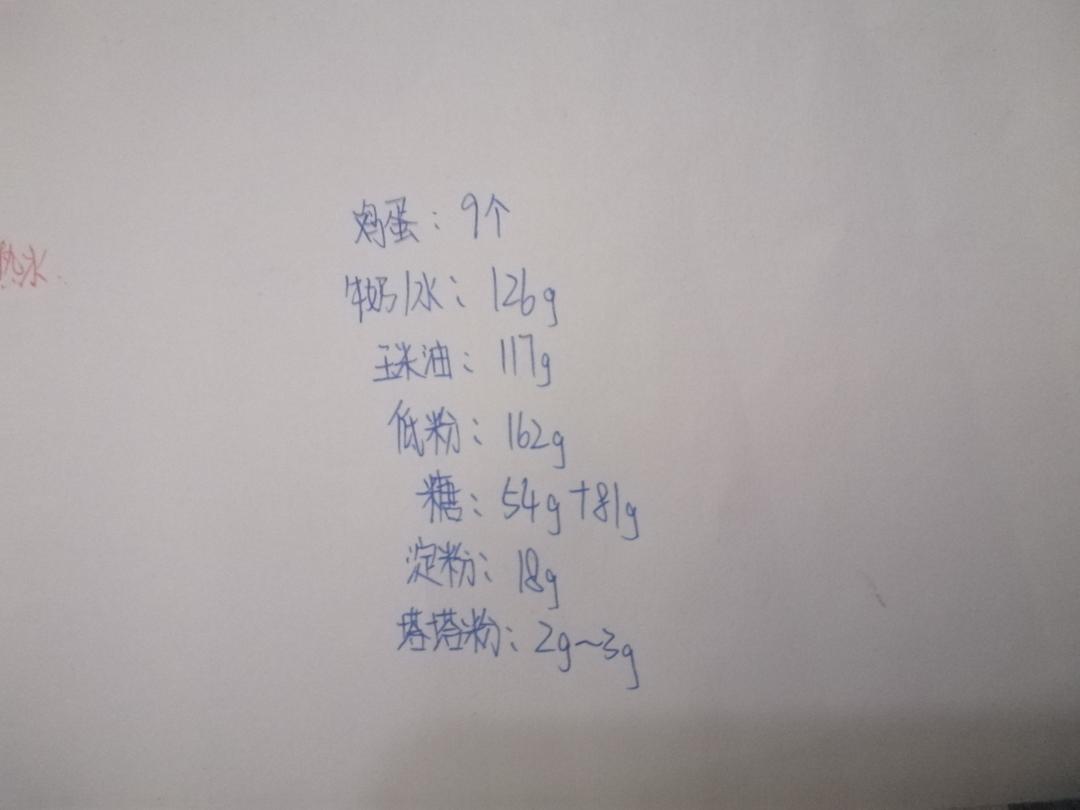 热水.
鸡蛋：9个
牛奶/水：126g
玉米油：117g
低粉：162g
糖：54g+81g
淀粉：18g
塔塔粉：2g~3g